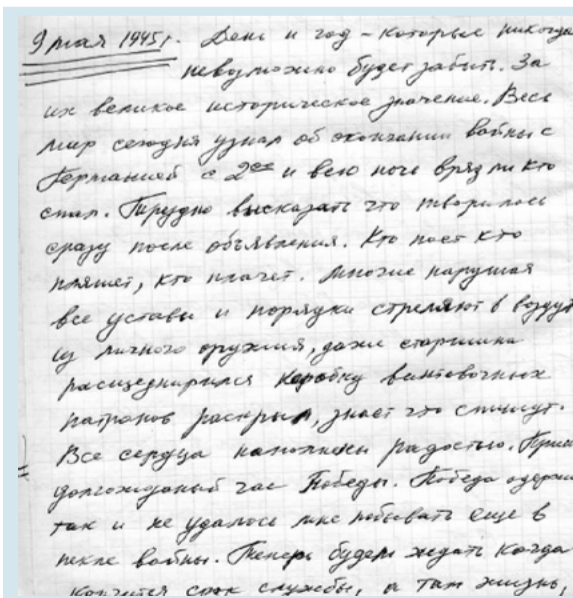 9 мая 1945 г. День и год – которые никогда
невозможно будет забыть. За
их великое историческое значение. Весь
мир сегодня узнал об окончании войны с
Германией с 2ое и всю ночь врядли кто
спал. Трудно высказать что творилось
сразу после объявления. Кто поет кто
пляшет, кто плачет. Многие нарушая
все уставы и порядки стреляют в воздух
из личного оружия, даже старшина
расщедрился коробку винтовочных
патронов раскрыл, знает что спишут.
Все сердца наполнены радостью. Приш
долгожданый час Победы. Победа одерж
так и не удалось мне побывать еще в
пекле войны. Теперь будем ждать когда
кончится срок службы, а там жизнь,